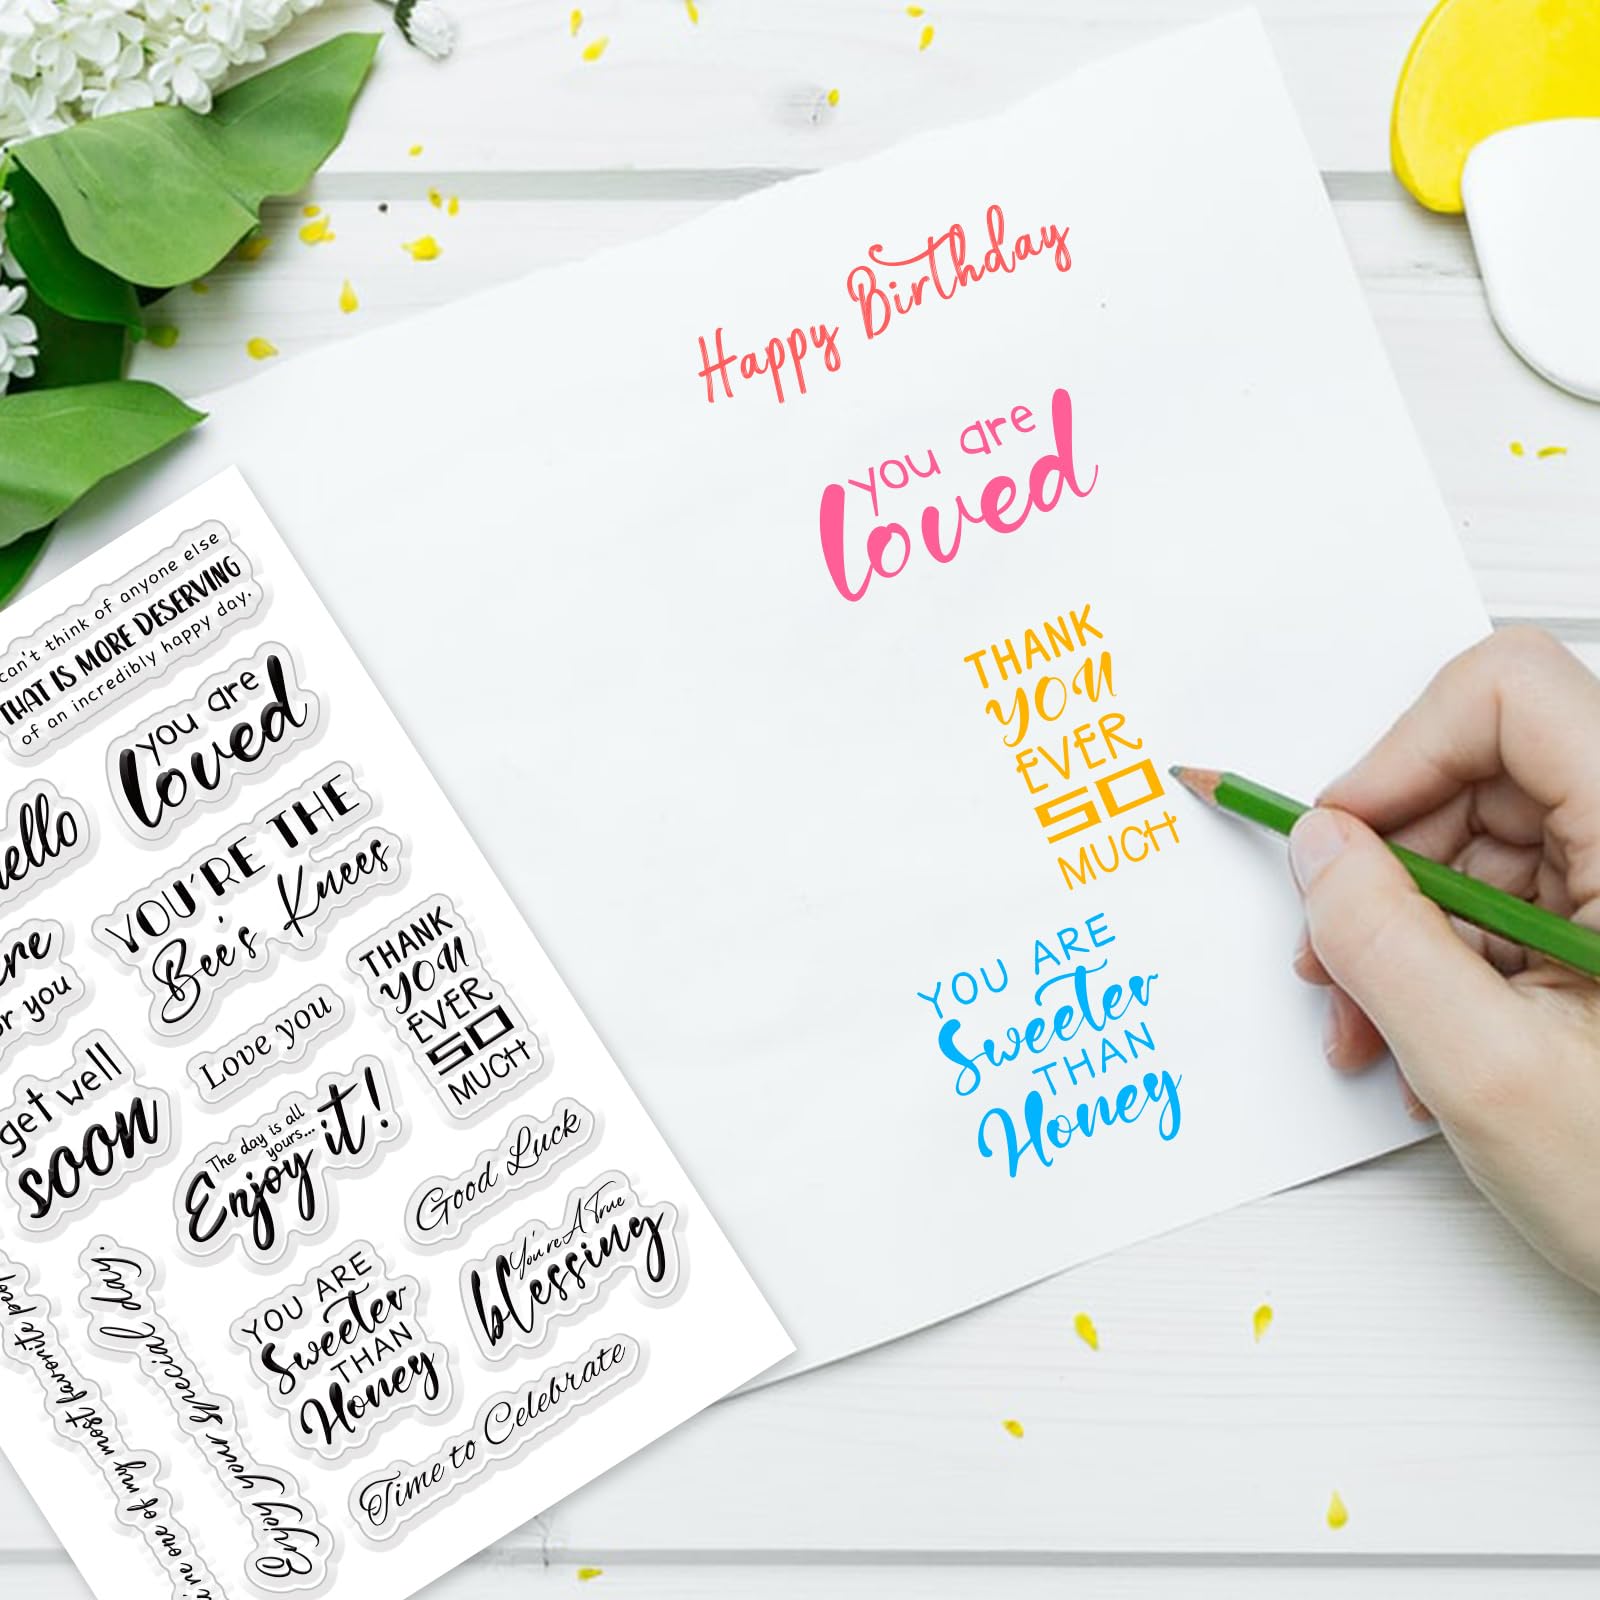 Happy Birthday
you are
loved
THANK
YOU
EVER
SO
MUCH
YOU ARE
Sweeter
THAN
Honey
can't think of anyone else
THAT IS MORE DESERVING
of an incredibly happy day.
you are
loved
YOU'RE THE
Bee's Knees
THANK
YOU
EVER
SO
MUCH
you
Love you
get well
soon
The day is all
yours...
Enjoy it!
Good Luck
You're A True
blessing
YOU ARE
Sweeter
THAN
Honey
Time to Celebrate
Enjoy your special day.
one of my most favorite